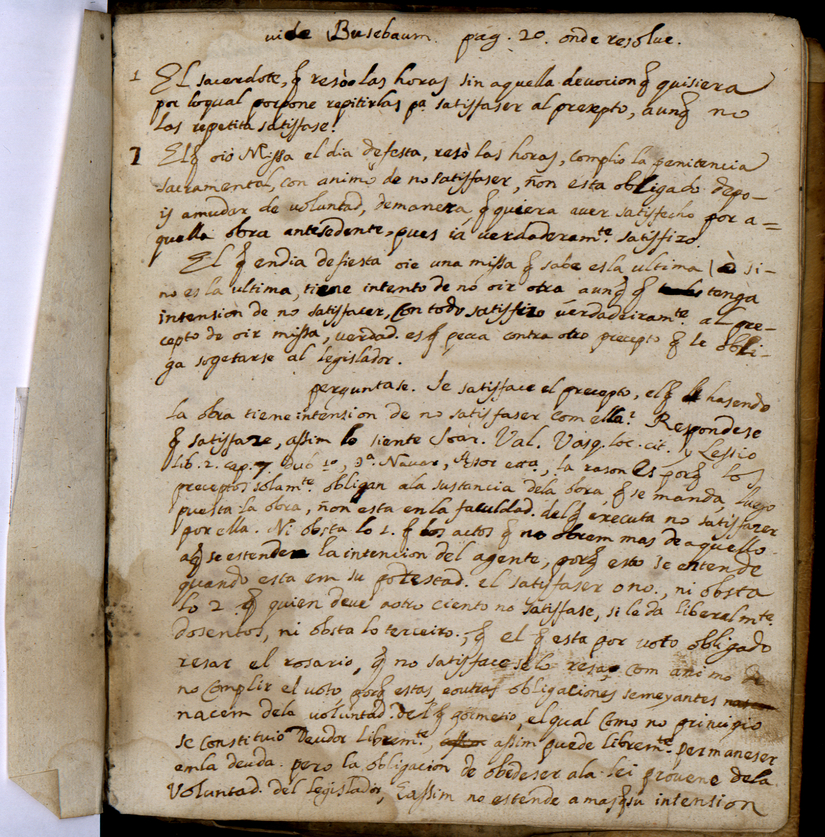 vide Busebaum. pag. 20. onde resolve.
1 El sacerdote, q̃ resò las horas sin aquella devocion q̃ quisiera
por loqual porpone repitirlas pa. satisfaser al presepto, aunq̃ no
las repetita satisfase.
7 Elq̃ oiò Missa el dia defesta, resò las horas, complio la penitencia
sacramental, con animo de no satisfaser, ñon esta obligado depo-
is amudar de voluntad, demanera q̃ quiera aver satisfecho por a=
quella obra antesedente, pues ia verdaderamte. satisfizo.
El q̃ endia defiesta oie una missa q̃ sabe es la ultima, ò si-
no es la ultima, tiene intento de nò oir otra aunq̃ q̃ tenga
intensiòn de no satisfacer, con todo satisfizo verdadeiramte. al pre-
cepto de oir missa, verdad. es q̃ pecca contra otro precepto q̃ le obli-
ga sogetarse al legislador.
perguntase. Se satisface el precepto, el q̃ hasendo
la obra tiene intension de no satisfaser com ella? Respondese
q̃ satisfaze, assim lo siente Soar. Val. Vasq. loc. cit. y Lessio
lib. 2. cap. 37. Dub 10, 9a. Navar, Asor etta, la rason es porq̃ los
preceptos solamte. obligan ala sustancia dela obra q̃ se manda, luego
puesta la obra, ñon esta en la faculdad. delq̃ executa no satisfazer
por ella. Ni obsta lo 1. q̃ los actos q̃ no obrem mas de aquello
aq̃ se estende la intencion del agente, porq̃ esto se entende
quando esta em su potestad. el satisfaser o no, ni obsta
lo 2 q̃ quien deve aotro ciento no satisfase, si le da liberalmte.
dosentos, ni obsta lo terceiro, q̃ el q̃ esta por voto obligado
resar el rosario, q̃ no satisface selo resa com animo de
no complir el voto porq̃ estas eoutras obligaciones semeyantes
nacem dela voluntad. delq̃ prometio, el qual como no principio
se constituiò Deudor libremte., assim puede libremte. permaneser
emla deuda. pero la obligaciòn de obedeser ala lei provene dela
voluntad. del legislador, Eassim no estende amas su intension